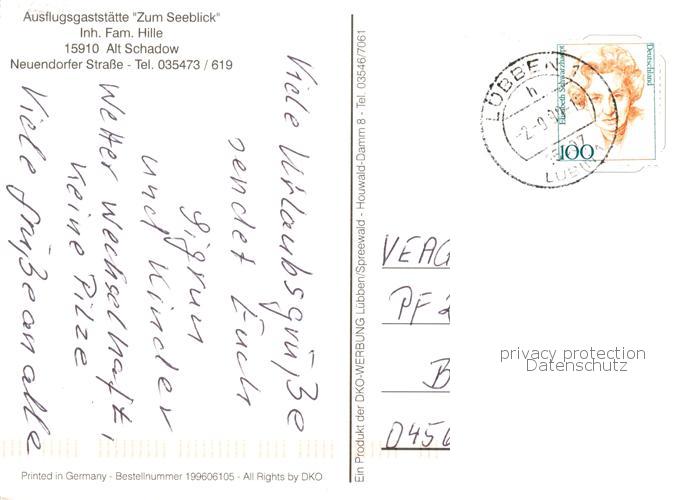 Ausflugsgaststätte "Zum Seeblick"
Inh. Fam. Hille
15910 Alt Schadow
Neuendorfer Straße - Tel. 035473 / 619
Viele Urlaubsgrüße
sendet Euch
Sigrun
und Kinder
Wetter wechselhaft,
keine Pilze
Viele Grüße an alle
Printed in Germany - Bestellnummer 199606105 - All Rights by DKO
Ein Produkt der DKO-WERBUNG Lübben/Spreewald - Houwald-Damm 8 - Tel. 03546/7061
LÜBBEN
h
Elisabeth Schwarzhaupt
Deutschland
100
VEAG
PF 2
B
0456
privacy protection
Datenschutz